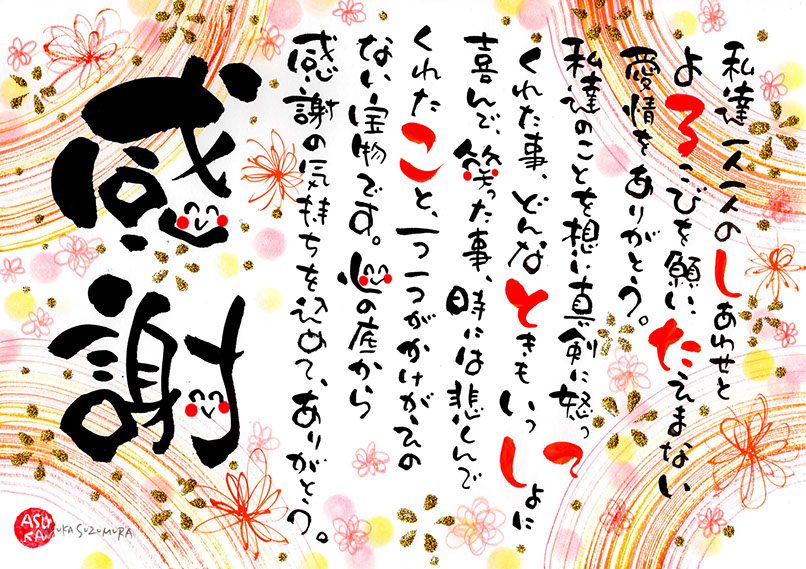 私達一人一人のしあわせと
よろこびを願いたえまない
愛情をありがとう。
私達のことを想い真剣に怒って
くれた事、どんなときもいっしょに
喜んで、笑った事、時には悲しんで
くれたこと、一つ一つがかけがえの
ない宝物です。心の底から
感謝の気持ちを込めて、ありがとう。
感謝
ASUKA
ASUKA SUZUMURA